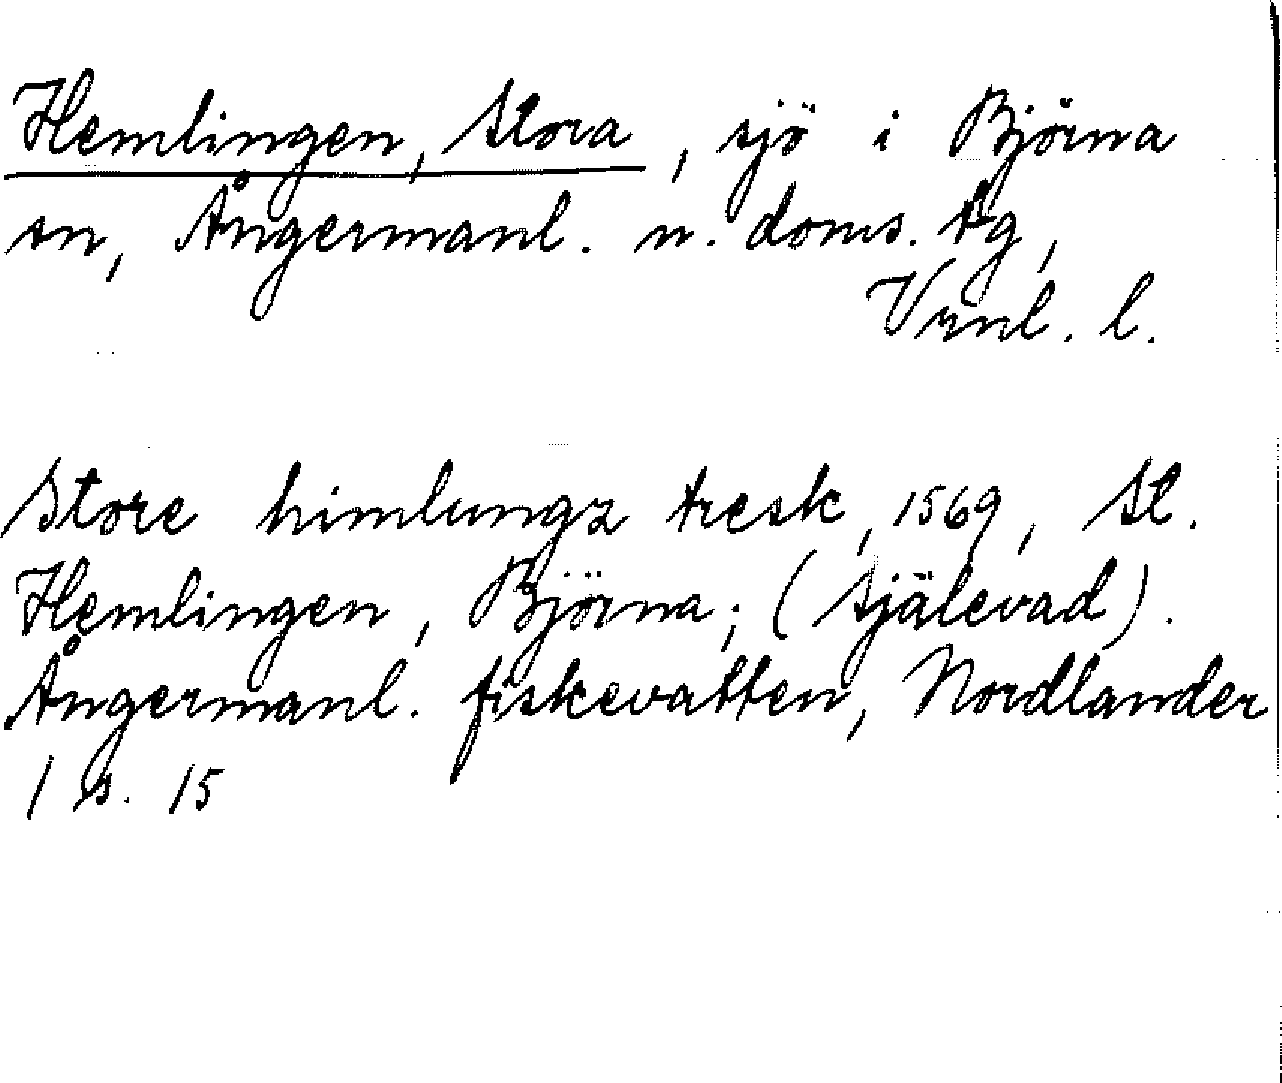 Hemlingen, Stora, sjö i Björna
sn, Ångermanl. n. doms. tg,
Vrnl. l.
Store himlungz tresk, 1569, St.
Hemlingen, Björna; (Själevad).
Ångermanl. fiskevatten, Nordlander
1 s. 15